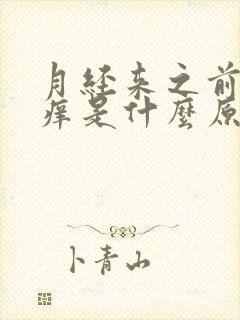 月经来之前
痒是什麼原
卜青山